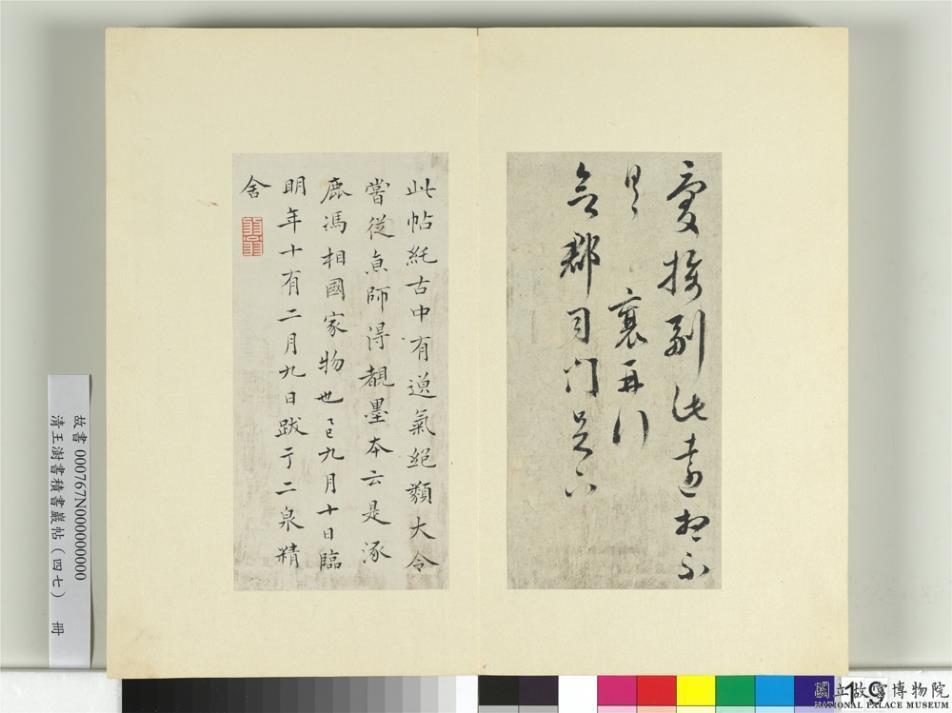 此遠想不
具 襄再行
郡司門足下
此帖純古中有遒氣絕類大令
嘗從師得覩墨本云是涿
鹿馮相國家物也九月十日臨
明年十有二月九日跋于二泉精
舍
故書 000767N000000000
清王澍書積書巖帖（四七） 冊
19
國立故宮博物院
NATIONAL PALACE MUSEUM